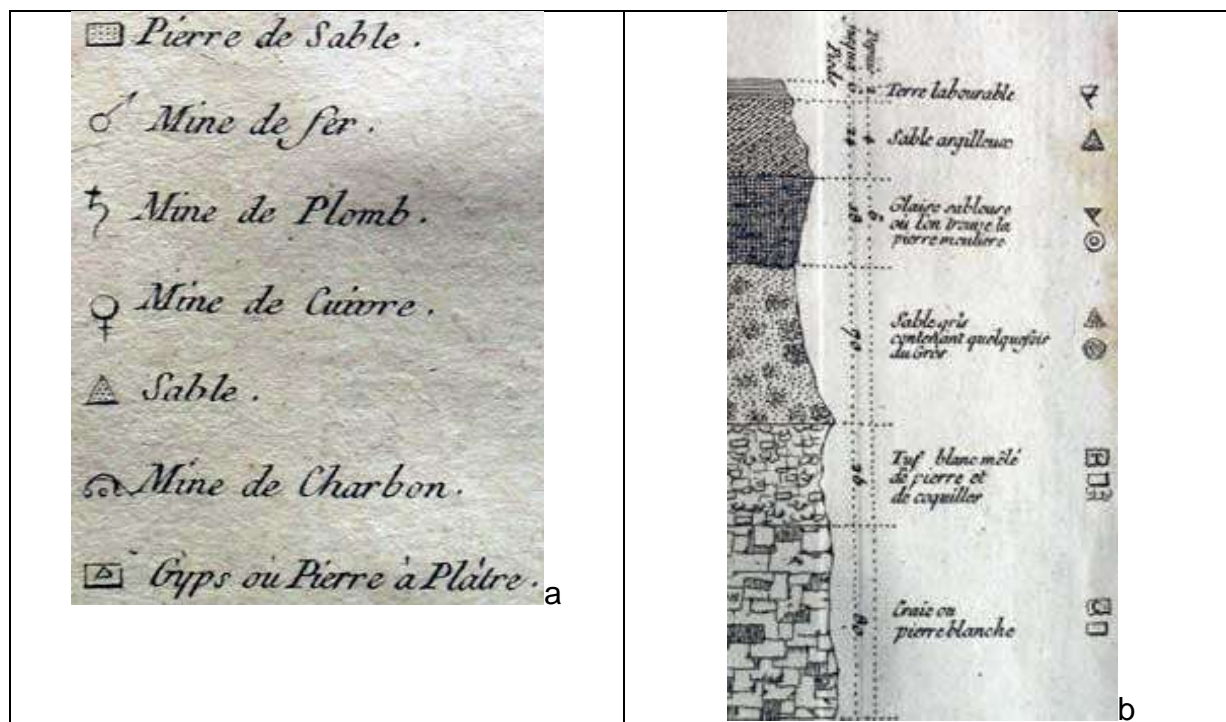 Pierre de Sable.
Mine de fer.
Mine de Plomb.
Mine de Cuivre.
Sable.
Mine de Charbon.
Gyps ou Pierre à Plâtre.
a
Terre labourable
Sable argilleux
Glaise sableuse
où l'on trouve la
pierre mouliere
Sable gris
contenant quelquefois
du Grès
Tuf blanc mêlé
de pierre et
de coquilles
Craie ou
pierre blanche
70
80
b